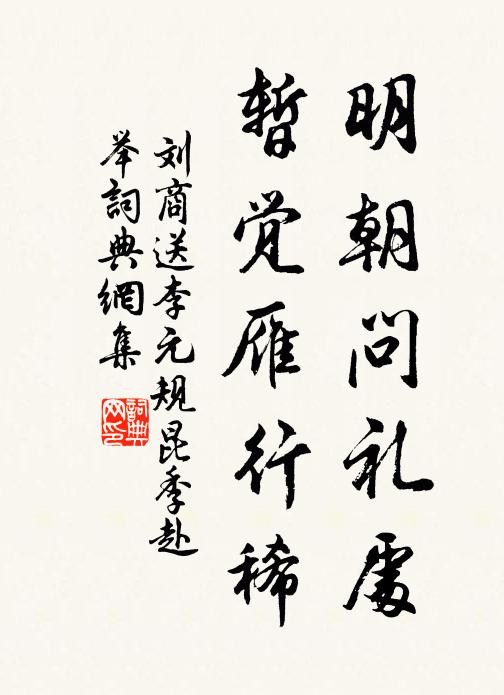 明朝问礼處
暫觉雁行稀
刘商送李元规昆季赴
举詞典網集
詞典
网印